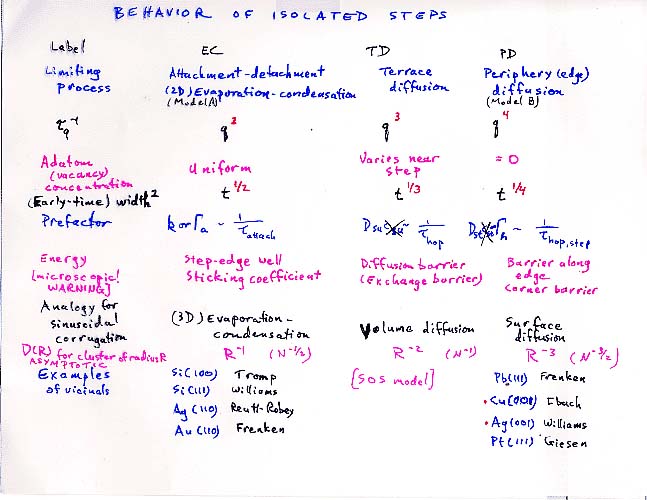 BEHAVIOR OF ISOLATED STEPS
Label EC TD PD
Limiting Attachment-detachment Terrace Periphery (edge)
process (2D) Evaporation-condensation diffusion diffusion
(Model A) (Model B)
τq⁻¹ q² q³ q⁴
Adatom Uniform Varies near = 0
(vacancy) step
concentration
(Early-time) width² t^1/2 t^1/3 t^1/4
Prefactor k or Γa ~ 1/τattach Dsu ~ 1/τhop Γh ~ 1/τhop,step
Energy Step-edge well Diffusion barrier Barrier along
[microscopic! Sticking coefficient (Exchange barrier) edge
WARNING] corner barrier
Analogy for
sinusoidal (3D) Evaporation- Volume diffusion Surface
corrugation condensation diffusion
D(R) for cluster of radius R R⁻¹ (N^-1/2) R⁻² (N⁻¹) R⁻³ (N^-3/2)
ASYMPTOTIC
Examples Si(100) Tromp [SOS model] Pb(111) Frenken
of vicinals Si(111) Williams • Cu(001) Ebach
Ag(110) Reutt-Robey • Ag(001) Williams
Au(110) Frenken Pt(111) Giesen